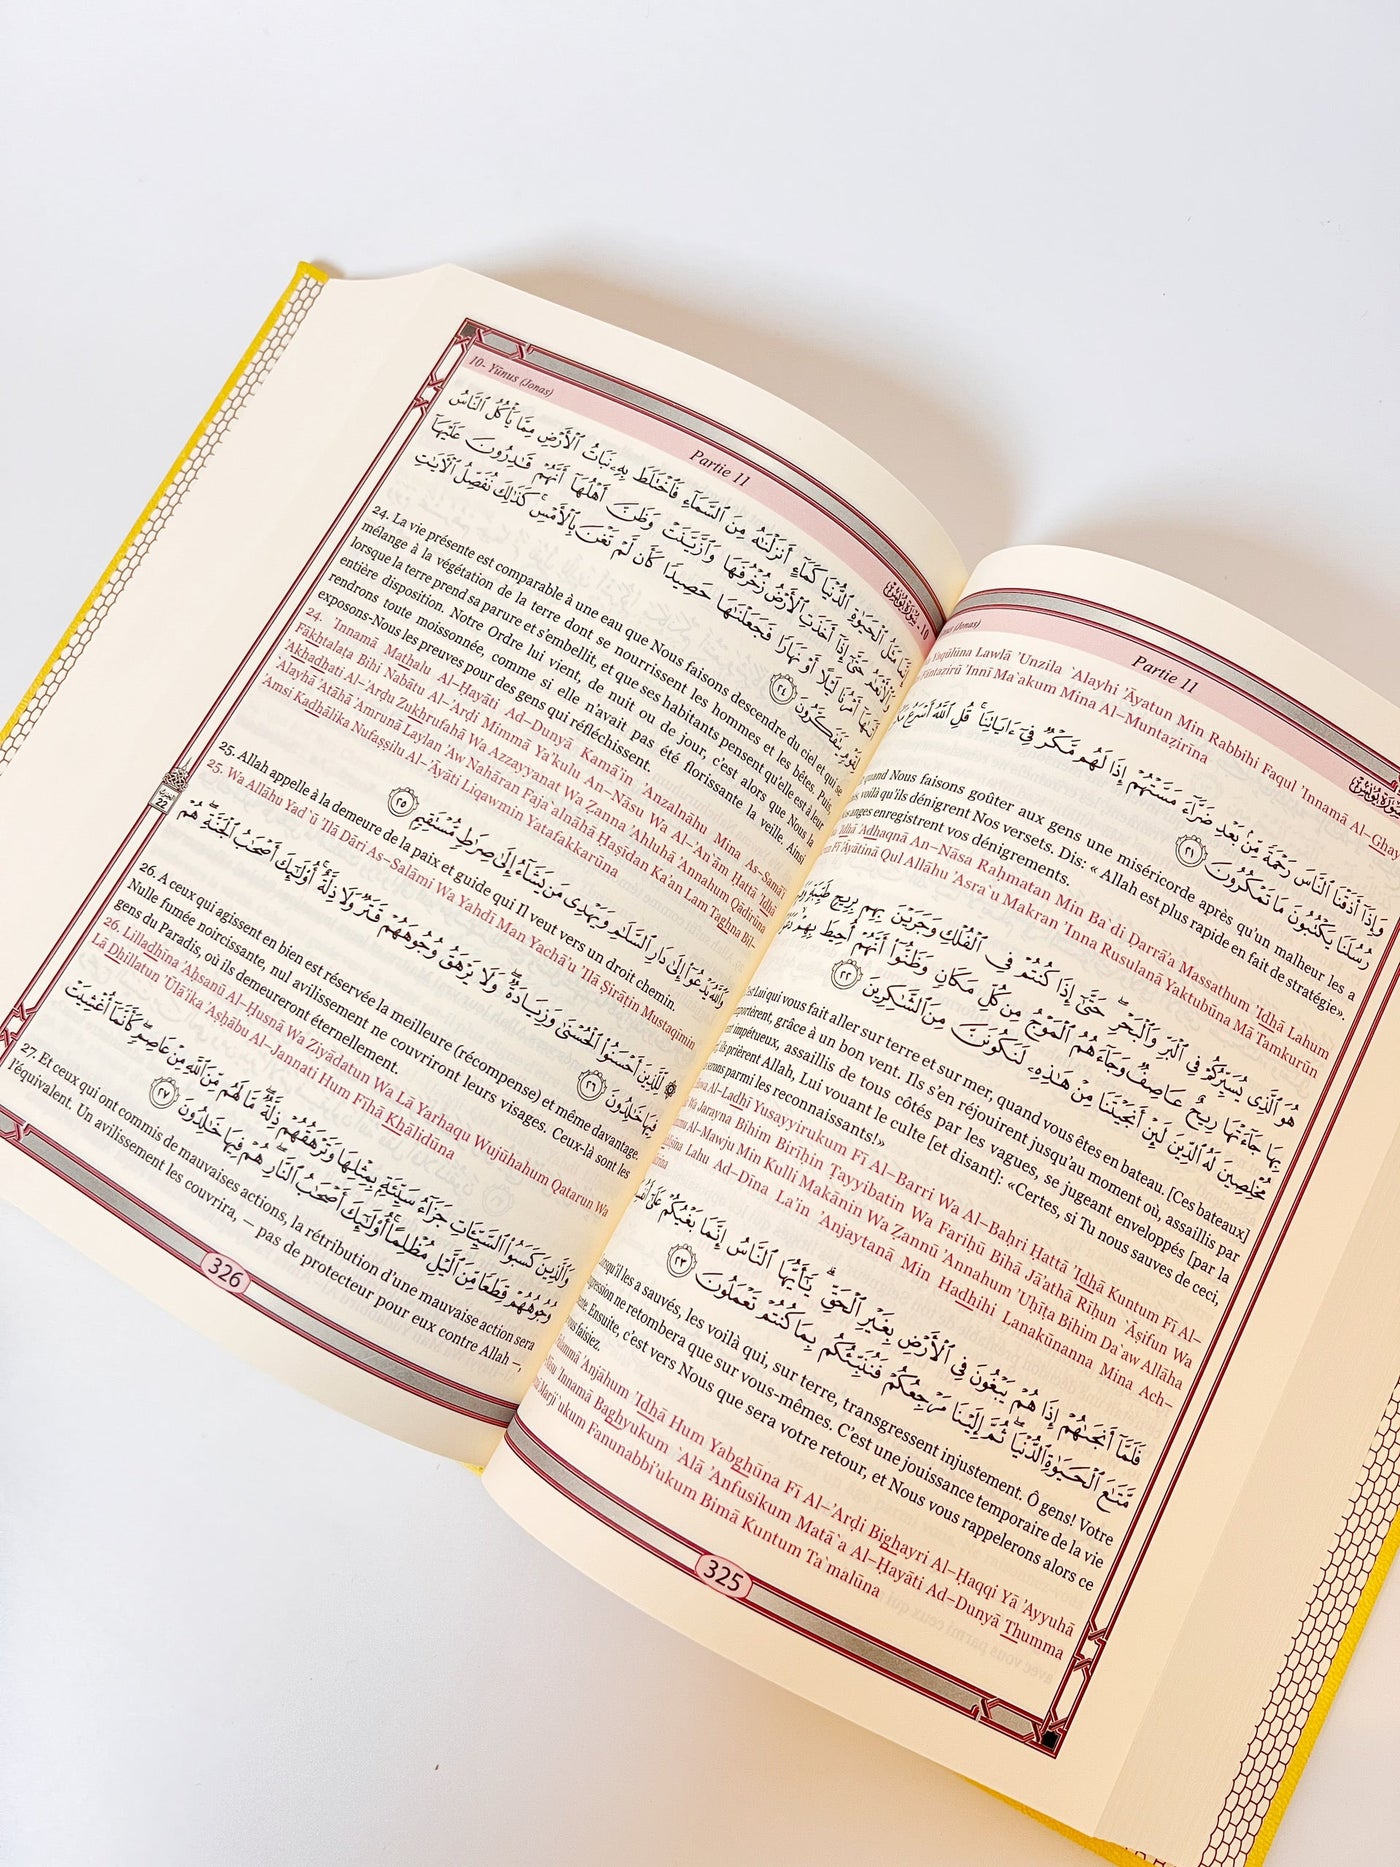 Partie 11
Yaqūlūna Lawlā 'Unzila `Alayhi 'Āyatun Min Rabbihi Faqul 'Innamā Al–Ghay
Fāntažirū 'Innī Ma`akum Mina Al–Muntažirīna
وَإِذَآ أَذَقْنَا ٱلنَّاسَ رَحْمَةً مِّنۢ بَعْدِ ضَرَّآءَ مَسَّتْهُمْ إِذَا لَهُم مَّكْرٌ فِىٓ ءَايَاتِنَا ۚ قُلِ ٱللَّهُ أَسْرَعُ
رُسُلَنَا يَكْتُبُونَ مَا تَمْكُرُونَ ٢١
uand Nous faisons goûter aux gens une miséricorde après qu'un malheur les a
voilà qu'ils dénigrent Nos versets. Dis: « Allah est plus rapide en fait de stratégie».
anges enregistrent vos dénigrements.
'Idhā 'Adhaqnā An–Nāsa Raḥmatan Min Ba`di Ḍarrā'a Massathum 'Idhā Lahum
Fī 'Āyātinā Qul Allāhu 'Asra`u Makran 'Inna Rusulanā Yaktubūna Mā Tamkurūn
هُوَ ٱلَّذِى يُسَيِّرُكُمْ فِى ٱلْبَرِّ وَٱلْبَحْرِ ۖ حَتَّىٰٓ إِذَا كُنتُمْ فِى ٱلْفُلْكِ وَجَرَيْنَ بِهِم بِرِيحٍ طَيِّبَةٍ
بِهَا جَآءَتْهَا رِيحٌ عَاصِفٌ وَجَآءَهُمُ ٱلْمَوْجُ مِن كُلِّ مَكَانٍ وَظَنُّوٓا۟ أَنَّهُمْ أُحِيطَ بِهِمْ
مُخْلِصِينَ لَهُ ٱلدِّينَ لَئِنْ أَنجَيْتَنَا مِنْ هَـٰذِهِۦ لَنَكُونَنَّ مِنَ ٱلشَّـٰكِرِينَ ٢٢
Lui qui vous fait aller sur terre et sur mer, quand vous êtes en bateau. [Ces bateaux]
portèrent, grâce à un bon vent. Ils s'en réjouirent jusqu'au moment où, assaillis par
impétueux, assaillis de tous côtés par les vagues, se jugeant enveloppés [par la
ils prièrent Allah, Lui vouant le culte [et disant]: «Certes, si Tu nous sauves de ceci,
erons parmi les reconnaissants!»
Al–Ladhī Yusayyirukum Fī Al–Barri Wa Al–Baḥri Ḥattá 'Idhā Kuntum Fī Al–
Wa Jarayna Bihim Birīḥin Ṭayyibatin Wa Fariḥū Bihā Jā'athā Rīḥun `Āşifun Wa
Al–Mawju Min Kulli Makānin Wa Žannū 'Annahum 'Uḥīṭa Bihim Da`aw Allāha
Lahu Ad–Dīna La'in 'Anjaytanā Min Hadhihi Lanakūnanna Mina Ach–
فَلَمَّآ أَنجَىٰهُمْ إِذَا هُمْ يَبْغُونَ فِى ٱلْأَرْضِ بِغَيْرِ ٱلْحَقِّ ۗ يَـٰٓأَيُّهَا ٱلنَّاسُ إِنَّمَا بَغْيُكُمْ عَلَىٰٓ
مَّتَـٰعَ ٱلْحَيَوٰةِ ٱلدُّنْيَا ۖ ثُمَّ إِلَيْنَا مَرْجِعُكُمْ فَنُنَبِّئُكُم بِمَا كُنتُمْ تَعْمَلُونَ ٢٣
qu'il les a sauvés, les voilà qui, sur terre, transgressent injustement. Ô gens! Votre
gression ne retombera que sur vous-mêmes. C'est une jouissance temporaire de la vie
Ensuite, c'est vers Nous que sera votre retour, et Nous vous rappelerons alors ce
faisiez.
'Anjāhum 'Idhā Hum Yabghūna Fī Al–'Arḍi Bighayri Al–Ḥaqqi Yā 'Ayyuhā
'Innamā Baghyukum `Alá 'Anfusikum Matā`a Al–Ḥayāti Ad–Dunyā Thumma
Marji`ukum Fanunabbi'ukum Bimā Kuntum Ta`malūna
325
10- Yūnus (Jonas)
Partie 11
إِنَّمَا مَثَلُ ٱلْحَيَوٰةِ ٱلدُّنْيَا كَمَآءٍ أَنزَلْنَـٰهُ مِنَ ٱلسَّمَآءِ فَٱخْتَلَطَ بِهِۦ نَبَاتُ ٱلْأَرْضِ مِمَّا يَأْكُلُ ٱلنَّاسُ
وَٱلْأَنْعَـٰمُ حَتَّىٰٓ إِذَآ أَخَذَتِ ٱلْأَرْضُ زُخْرُفَهَا وَٱزَّيَّنَتْ وَظَنَّ أَهْلُهَآ أَنَّهُمْ قَـٰدِرُونَ عَلَيْهَآ
أَتَىٰهَآ أَمْرُنَا لَيْلًا أَوْ نَهَارًا فَجَعَلْنَـٰهَا حَصِيدًا كَأَن لَّمْ تَغْنَ بِٱلْأَمْسِ ۚ كَذَٰلِكَ نُفَصِّلُ ٱلْـَٔايَـٰتِ
لِقَوْمٍ يَتَفَكَّرُونَ ٢٤
24. La vie présente est comparable à une eau que Nous faisons descendre du ciel et qui se
mélange à la végétation de la terre dont se nourrissent les hommes et les bêtes. Puis,
lorsque la terre prend sa parure et s'embellit, et que ses habitants pensent qu'elle est à leur
entière disposition. Notre Ordre lui vient, de nuit ou de jour, c'est alors que Nous la
rendrons toute moissonnée, comme si elle n'avait pas été florissante la veille. Ainsi
exposons-Nous les preuves pour des gens qui réfléchissent.
24. 'Innamā Mathalu Al–Ḥayāti Ad–Dunyā Kamā'in 'Anzalnāhu Mina As–Samā'i
Fākhtalaṭa Bihi Nabātu Al–'Arḍi Mimmā Ya'kulu An–Nāsu Wa Al–'An`ām Ḥattá 'Idhā
'Akhadhati Al–'Arḍu Zukhrufahā Wa Azzayyanat Wa Žanna 'Ahluhā 'Annahum Qādirūna
`Alayhā 'Atāhā 'Amrunā Laylan 'Aw Nahāran Faja`alnāhā Ḥaşīdan Ka'an Lam Taghna Bil–
'Amsi Kadhālika Nufaşşilu Al–'Āyāti Liqawmin Yatafakkarūna
وَٱللَّهُ يَدْعُوٓا۟ إِلَىٰ دَارِ ٱلسَّلَـٰمِ وَيَهْدِى مَن يَشَآءُ إِلَىٰ صِرَٰطٍ مُّسْتَقِيمٍ ٢٥
25. Allah appelle à la demeure de la paix et guide qui Il veut vers un droit chemin.
25. Wa Allāhu Yad`ū 'Ilá Dāri As–Salāmi Wa Yahdī Man Yachā'u 'Ilá Şirāṭin Mustaqīmin
لِّلَّذِينَ أَحْسَنُوا۟ ٱلْحُسْنَىٰ وَزِيَادَةٌ ۖ وَلَا يَرْهَقُ وُجُوهَهُمْ قَتَرٌ وَلَا ذِلَّةٌ ۚ أُو۟لَـٰٓئِكَ أَصْحَـٰبُ ٱلْجَنَّةِ ۖ هُمْ
فِيهَا خَـٰلِدُونَ ٢٦
26. A ceux qui agissent en bien est réservée la meilleure (récompense) et même davantage.
Nulle fumée noircissante, nul avilissement ne couvriront leurs visages. Ceux-là sont les
gens du Paradis, où ils demeureront éternellement.
26. Lilladhīna 'Aḥsanū Al–Ḥusná Wa Ziyādatun Wa Lā Yarhaqu Wujūhahum Qatarun Wa
Lā Dhillatun 'Ūlā'ika 'Aşḥābu Al–Jannati Hum Fīhā Khālidūna
وَٱلَّذِينَ كَسَبُوا۟ ٱلسَّيِّـَٔاتِ جَزَآءُ سَيِّئَةٍۭ بِمِثْلِهَا وَتَرْهَقُهُمْ ذِلَّةٌ ۖ مَّا لَهُم مِّنَ ٱللَّهِ مِنْ عَاصِمٍ ۖ كَأَنَّمَآ أُغْشِيَتْ
وُجُوهُهُمْ قِطَعًا مِّنَ ٱلَّيْلِ مُظْلِمًا ۚ أُو۟لَـٰٓئِكَ أَصْحَـٰبُ ٱلنَّارِ ۖ هُمْ فِيهَا خَـٰلِدُونَ ٢٧
27. Et ceux qui ont commis de mauvaises actions, la rétribution d'une mauvaise action sera
l'équivalent. Un avilissement les couvrira, — pas de protecteur pour eux contre Allah –,
326
الحزب
22